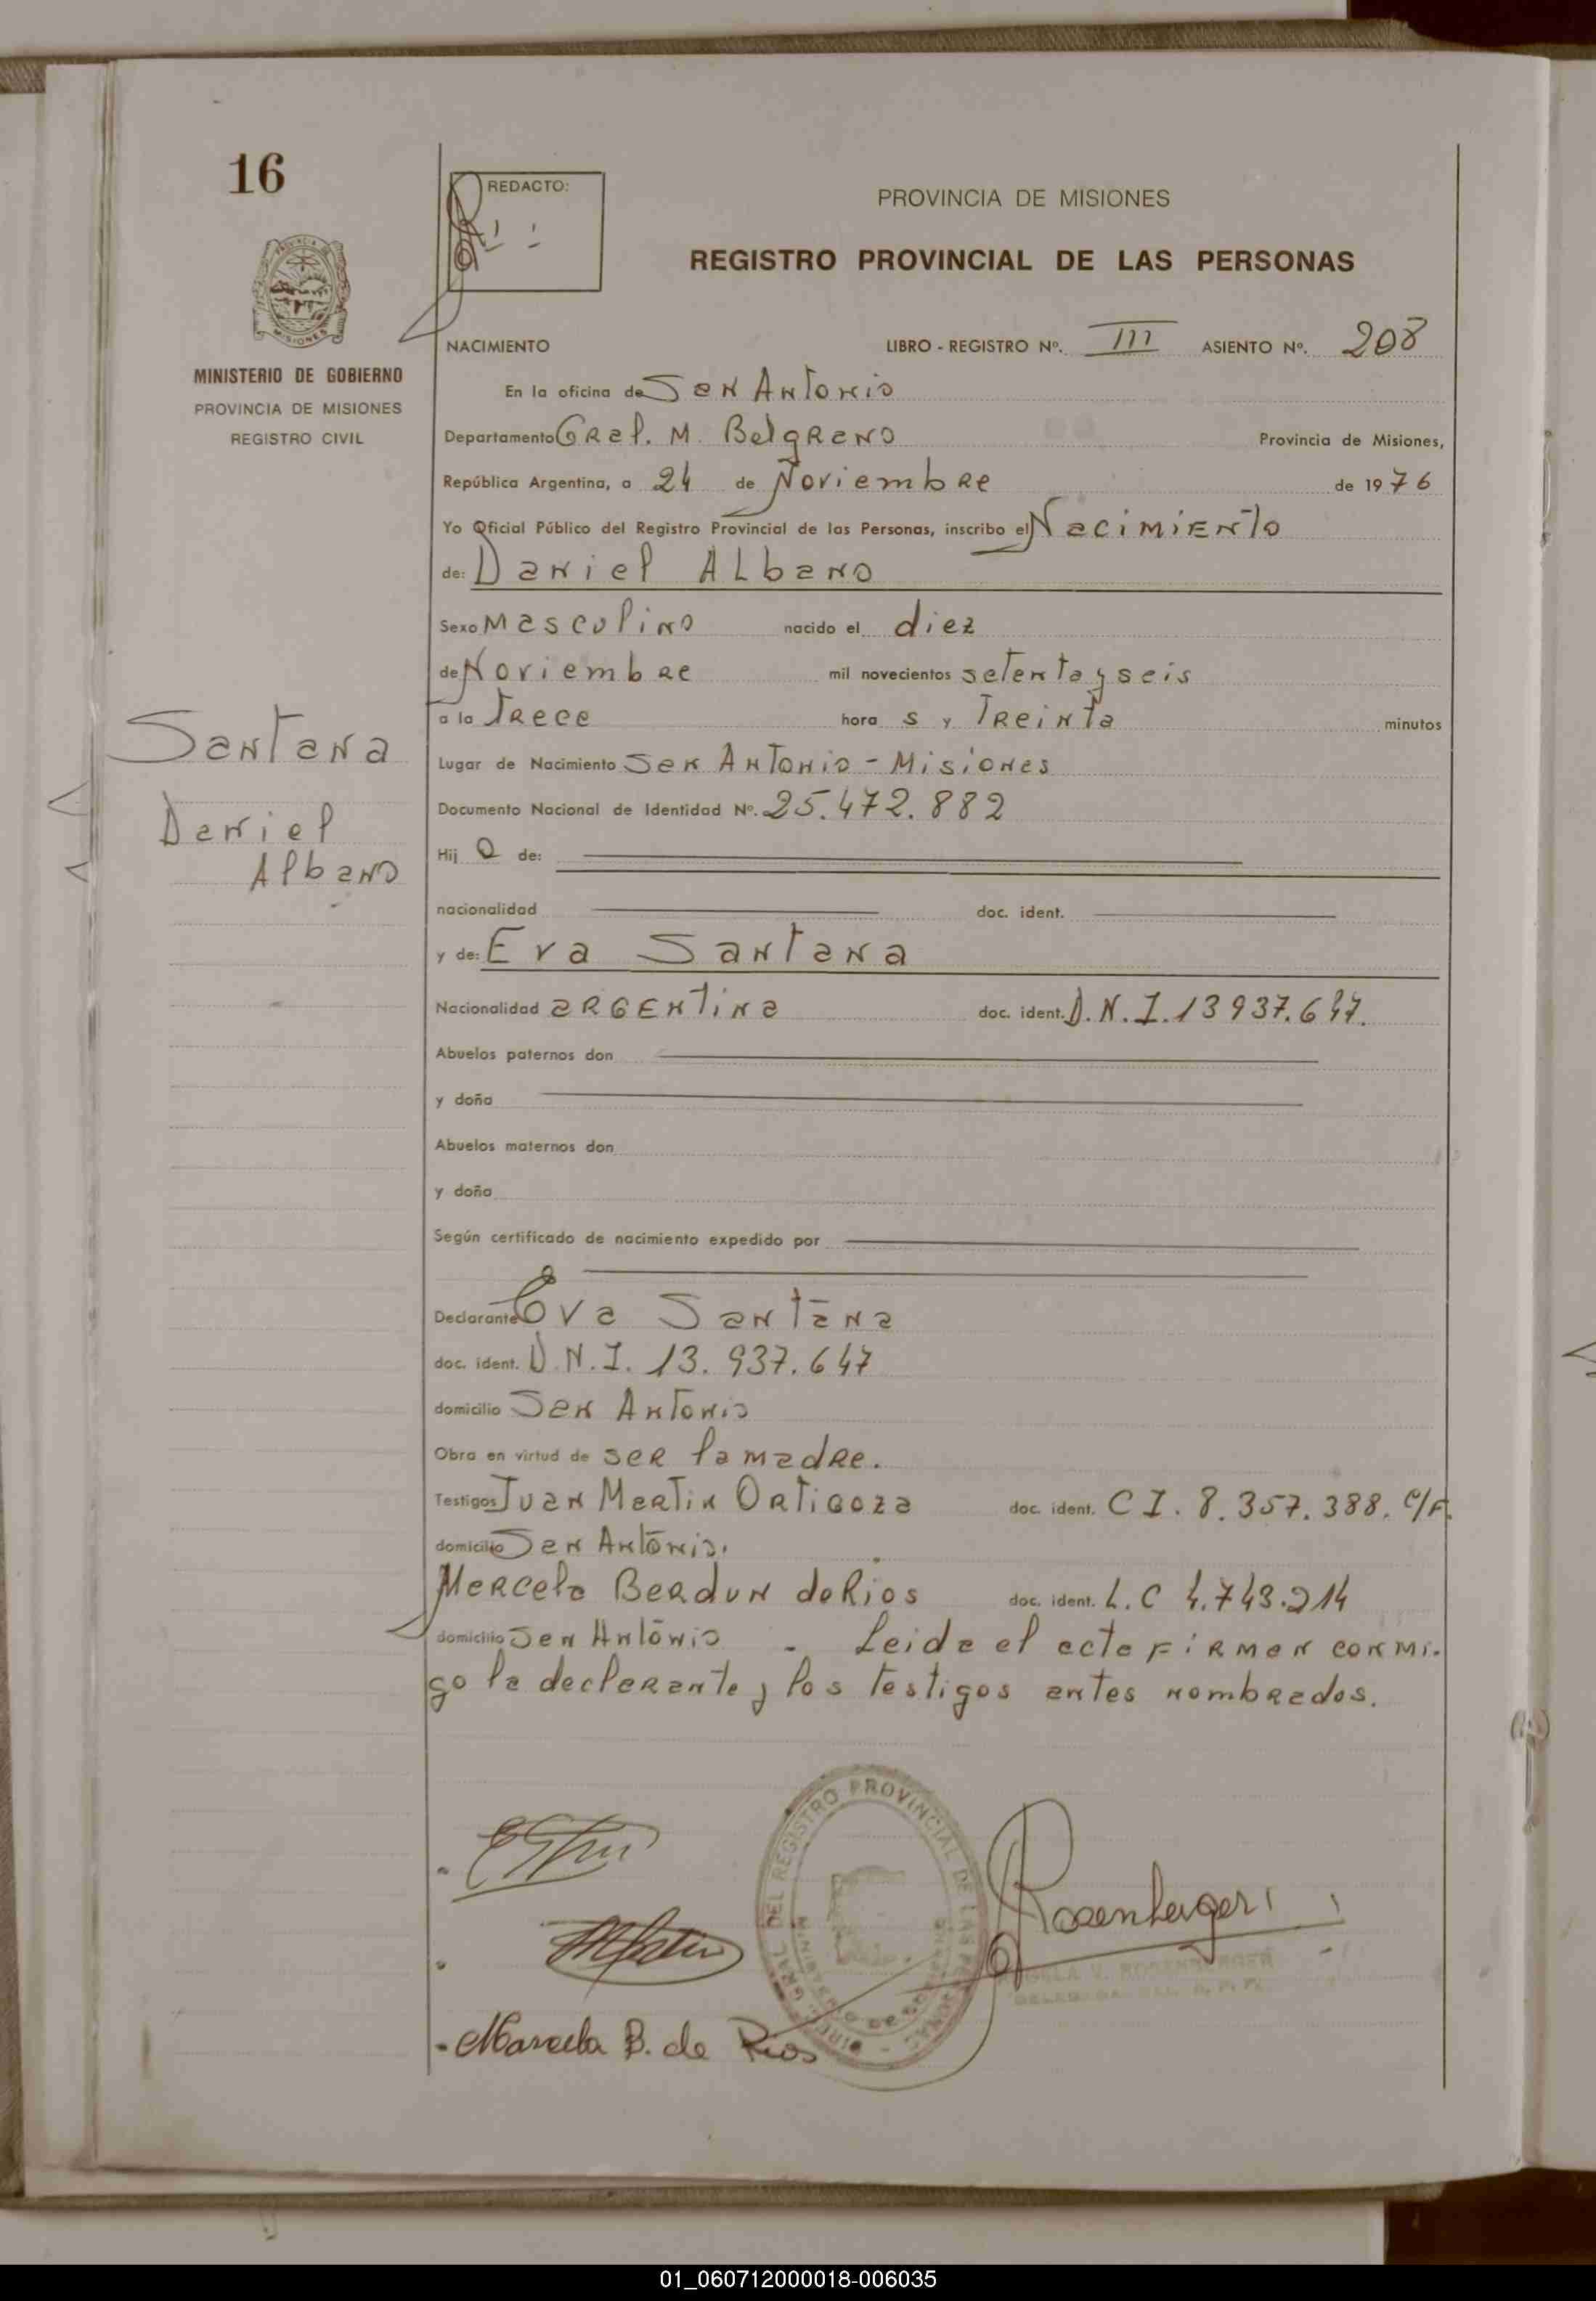 16
REDACTO:
PROVINCIA DE MISIONES
REGISTRO PROVINCIAL DE LAS PERSONAS
MISIONES
MINISTERIO DE GOBIERNO
PROVINCIA DE MISIONES
REGISTRO CIVIL
NACIMIENTO LIBRO - REGISTRO Nº. III ASIENTO Nº. 208
En la oficina de San Antonio
Departamento Gral. M. Belgrano Provincia de Misiones,
República Argentina, a 24 de Noviembre de 1976
Yo Oficial Público del Registro Provincial de las Personas, inscribo el Nacimiento
de: Daniel Albano
Sexo Masculino nacido el diez
de Noviembre mil novecientos setenta y seis
a la Trece hora s y Treinta minutos
Santana
Lugar de Nacimiento San Antonio - Misiones
Documento Nacional de Identidad Nº. 25.472.882
Daniel
Albano
Hij o de:
nacionalidad doc. ident.
y de: Eva Santana
Nacionalidad argentina doc. ident. D.N.I. 13937.647.
Abuelos paternos don
y doña
Abuelos maternos don
y doña
Según certificado de nacimiento expedido por
Declarante Eva Santana
doc. ident. D.N.I. 13.937.647
domicilio San Antonio
Obra en virtud de ser la madre.
Testigos Juan Martin Ortigoza doc. ident. C I. 8.357.388. C/F.
domicilio San Antonio.
Marcela Berdun de Rios doc. ident. L.C 4.743.214
domicilio San Antonio - Leida el acta firman conmi-
go la declarante y los testigos antes nombrados.
DIREC. GRAL. DEL REGISTRO PROVINCIAL DE LAS PERSONAS
MINISTERIO DE GOBIERNO
Rosenberger
V. ROSENBERGER
Marcela B. de Rios
01_060712000018-006035